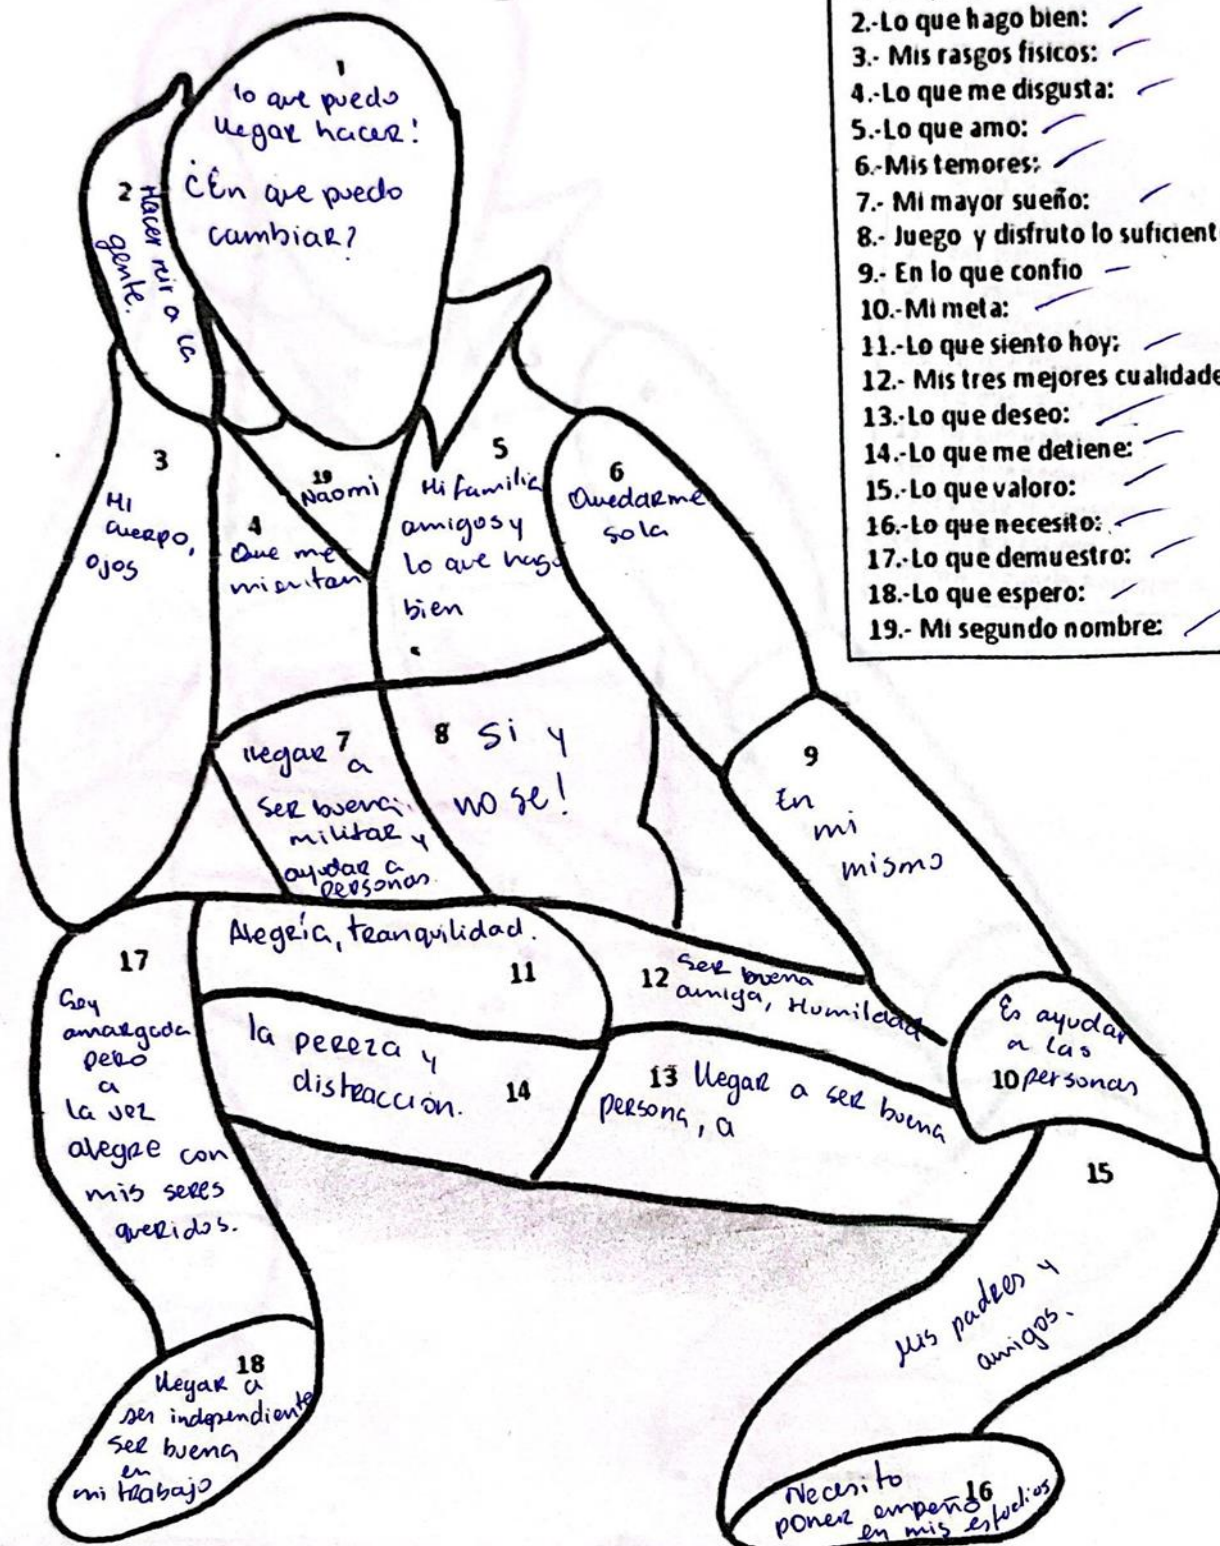 2.-Lo que hago bien:
3.- Mis rasgos fisicos:
4.-Lo que me disgusta:
5.-Lo que amo:
6.-Mis temores:
7.- Mi mayor sueño:
8.- Juego y disfruto lo suficient
9.- En lo que confio
10.-Mi meta:
11.-Lo que siento hoy:
12.- Mis tres mejores cualidade
13.-Lo que deseo:
14.-Lo que me detiene:
15.-Lo que valoro:
16.-Lo que necesito:
17.-Lo que demuestro:
18.-Lo que espero:
19.- Mi segundo nombre:
1
lo que puedo
llegar hacer!
¿En que puedo
cambiar?
2
Hacer reir a la
gente.
3
Mi
cuerpo,
ojos
19
Naomi
4
Que me
mientan
5
Mi familia
amigos y
lo que hago
bien
6
Quedarme
sola
7
llegar a
ser buena
militar y
ayudar a
personas.
8 Si y
no se!
9
En
mi
mismo
Es ayudar
a las
10 personas
Alegría, tranquilidad.
11
12 Ser buena
amiga, Humildad
13 llegar a ser buena
persona, a
la pereza y
distracción. 14
15
Mis padres y
amigos.
Necesito 16
poner empeño
en mis estudios
17
Soy
amargada
pero
a
la vez
alegre con
mis seres
queridos.
18
llegar a
ser independiente
ser buena
en
mi trabajo